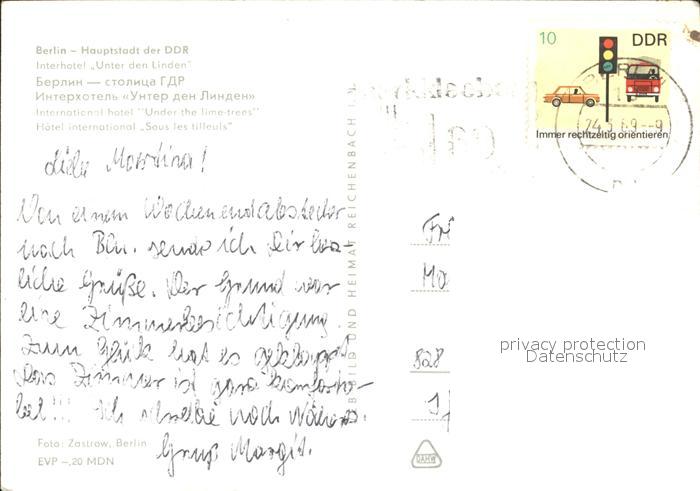 Berlin – Hauptstadt der DDR
Interhotel „Unter den Linden"
Берлин — столица ГДР
Интерхотель «Унтер ден Линден»
International hotel "Under the lime-trees"
Hôtel international „Sous les tilleuls"
Liebe Martina!
Von einem Wochenendabstecher
nach Bln. sende ich Dir herz-
liche Grüße. Der Grund war
eine Zimmerbesichtigung.
Zum Glück hat es geklappt.
Das Zimmer ist ganz komforta-
bel!!! Ich schreibe noch Näheres.
Gruß Margit.
Foto: Zastrow, Berlin
EVP –,20 MDN
BILD UND HEIMAT REICHENBACH I. V.
10
DDR
Immer rechtzeitig orientieren
Frl
Ma
828
privacy protection
Datenschutz
DAHW